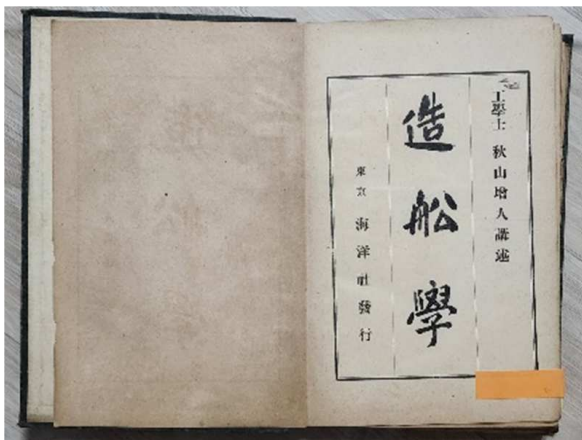 工學士 秋山増人講述
造船學
東京 海洋社發行